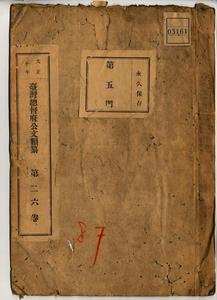 03161
永久保存
第五門
大正十年
臺灣總督府公文類纂 第二六卷
87